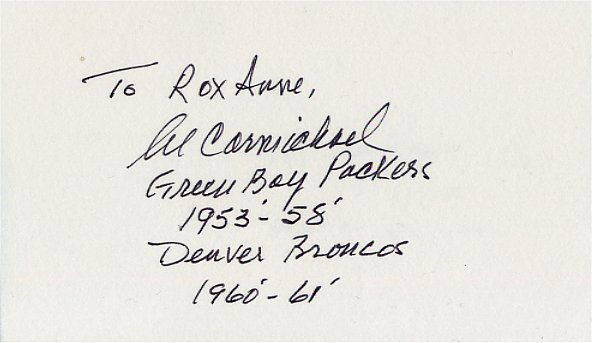 To RoxAnne,
Al Carmichael
Green Bay Packers
1953'-58'
Denver Broncos
1960'-61'